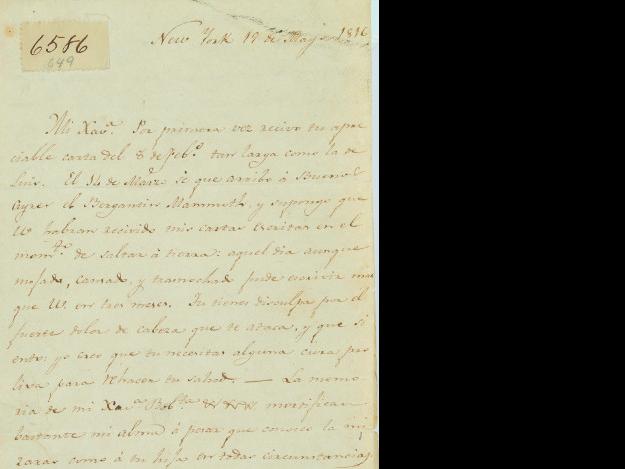 6586
649
New York 19 de Mayo 1816
Mi Xav.ª Por primera vez recivo tu apre
ciable carta del 8 de Feb.º tan larga como la de
Luis. El 14 de Marzo se que arribo á Buenos
Ayres el Bergantin Mammoth, y supongo que
V. habran recivido mis cartas escritas en el
mom.to de saltar á tierra: aquel dia aunque
mojada, cansad, y trasnochad pude escrivir mas
que V. en tres meses. Tu tienes disculpa por el
fuerte dolor de cabeza que te ataca, y que si
ento: yo creo que tu necesitas alguna cura pro
lixa para rehacer tu salud. — La memo
ria de mi Xav.ª mortifican
bastante mi alma á pesar que conosco la mi
raras como á tu hija en todas circunstancias.